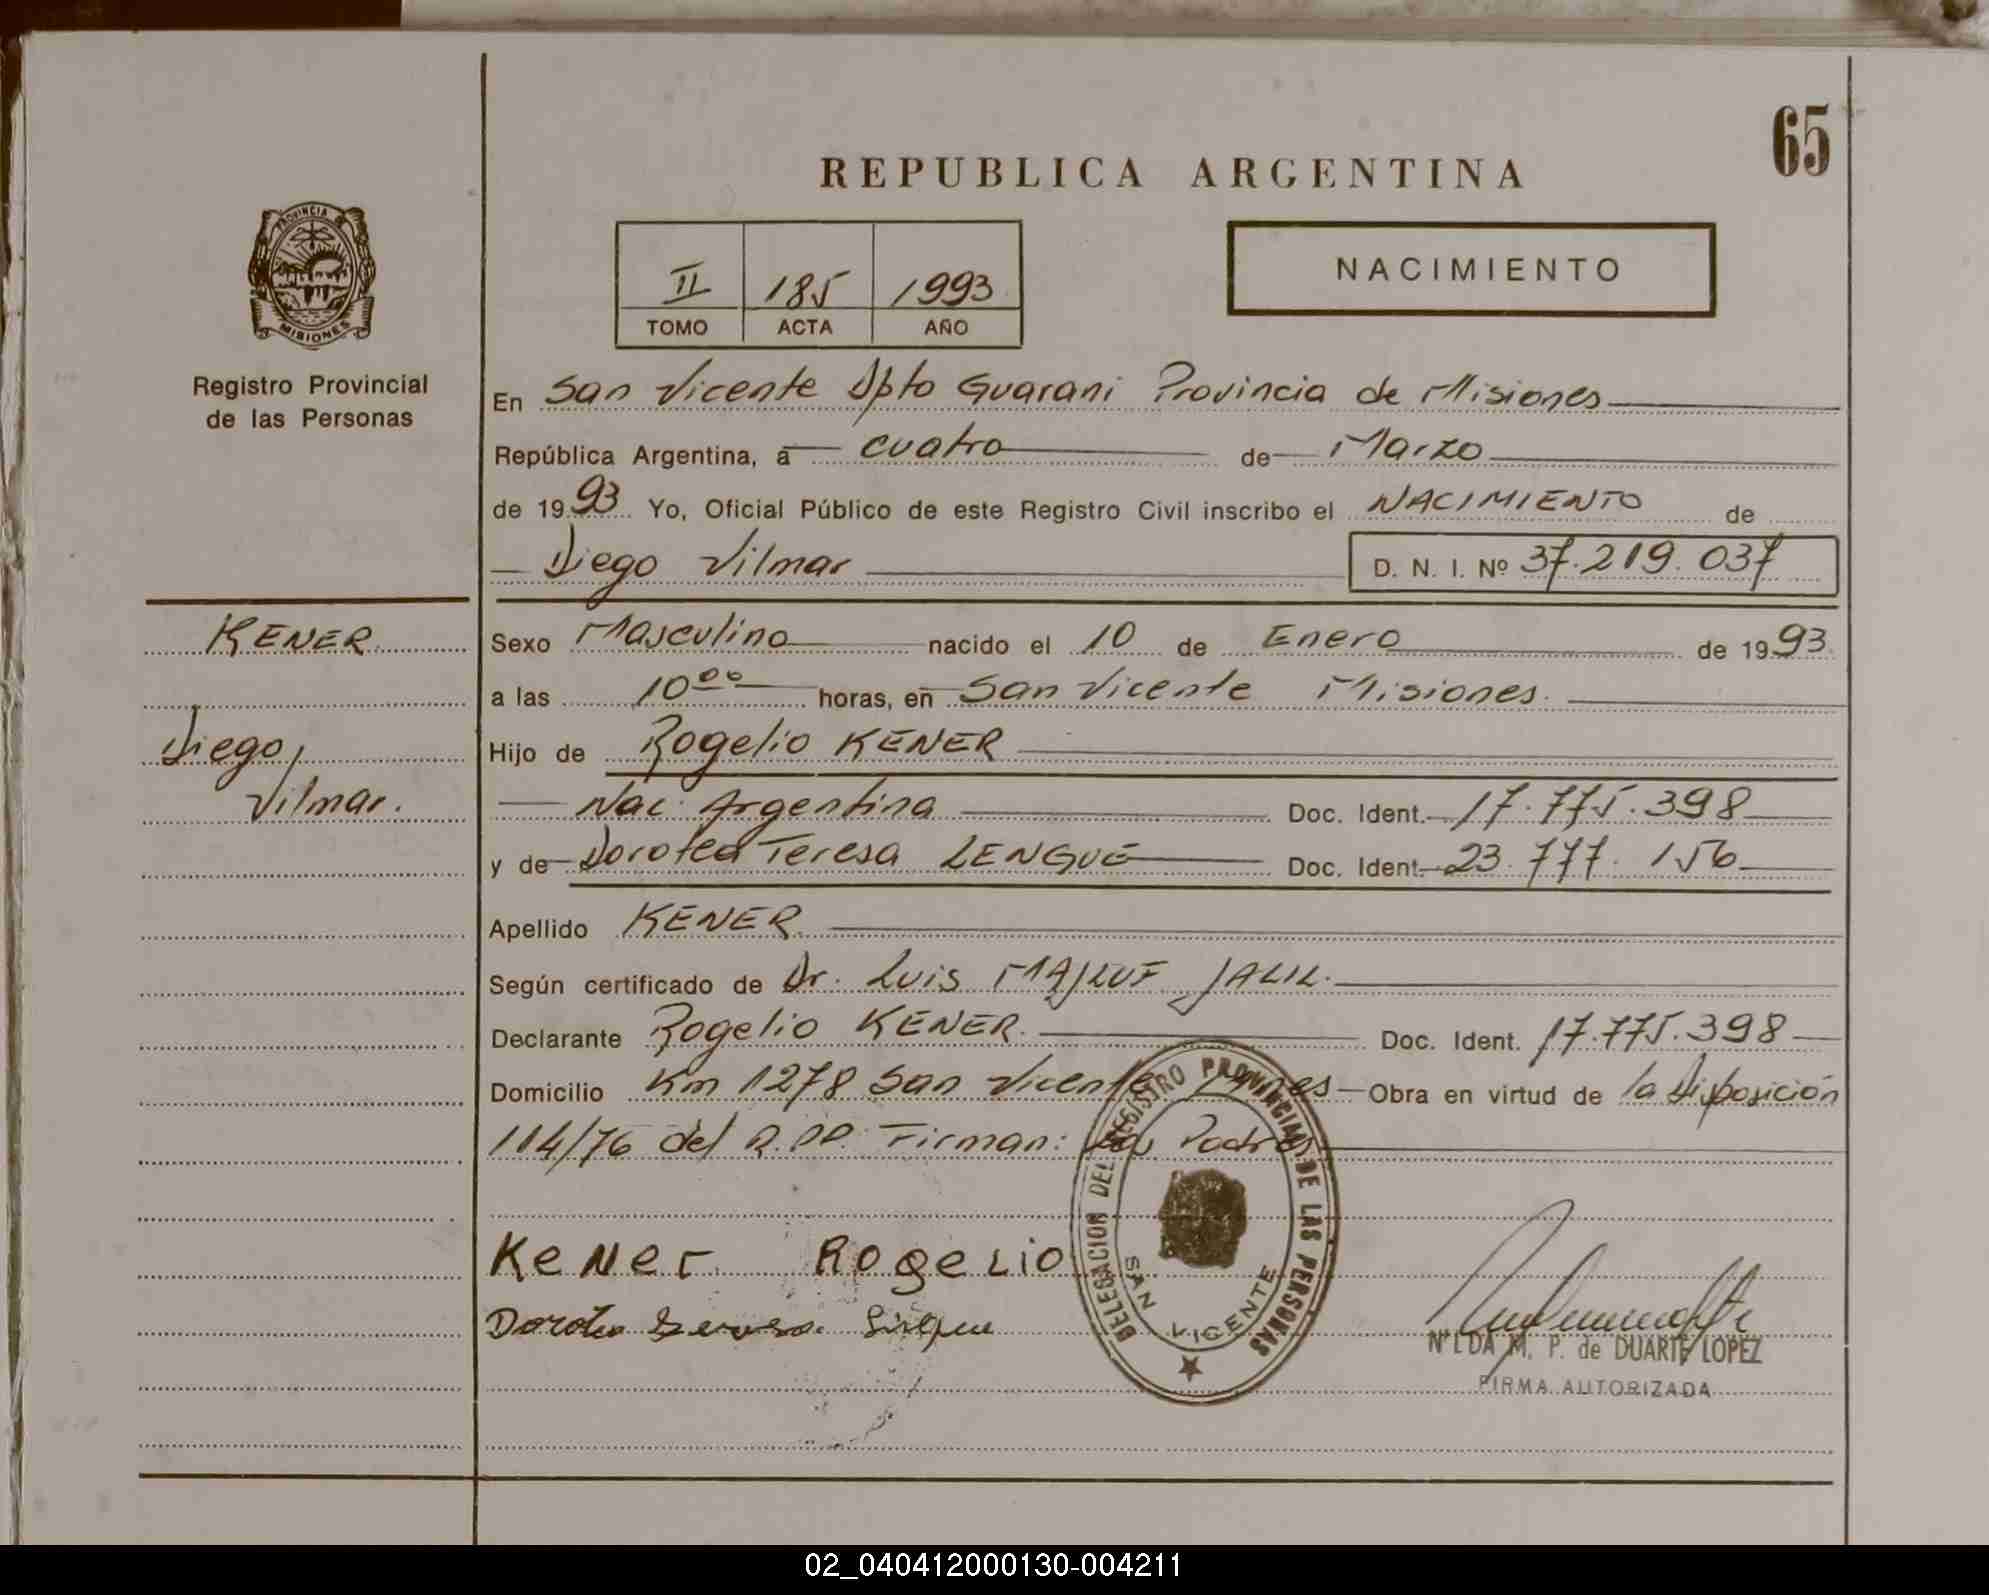 65
REPUBLICA ARGENTINA
PROVINCIA DE
MISIONES
II 185 1993
TOMO ACTA AÑO
NACIMIENTO
Registro Provincial
de las Personas
En San Vicente Dpto Guarani Provincia de Misiones
República Argentina, a cuatro de Marzo
de 1993 Yo, Oficial Público de este Registro Civil inscribo el NACIMIENTO de
Diego Vilmar D. N. I. Nº 37.219.037
KENER
Diego,
Vilmar.
Sexo Masculino nacido el 10 de Enero de 1993
a las 10 00 horas, en San Vicente Misiones.
Hijo de Rogelio KENER
Nac. Argentina Doc. Ident. 17.775.398
y de Dorotea Teresa LENGUE Doc. Ident. 23.777.156
Apellido KENER
Según certificado de Dr. Luis MAJLUF JALIL.
Declarante Rogelio KENER. Doc. Ident. 17.775.398
Domicilio Km 1278 San Vicente Mnes Obra en virtud de la Disposición
114/76 del R.P.P. Firman: Los Padres
Kener Rogelio
Dorotea
DELEGACION DEL REGISTRO PROVINCIAL DE LAS PERSONAS
SAN VICENTE
NILDA M. P. de DUARTE LOPEZ
FIRMA AUTORIZADA
02_040412000130-004211